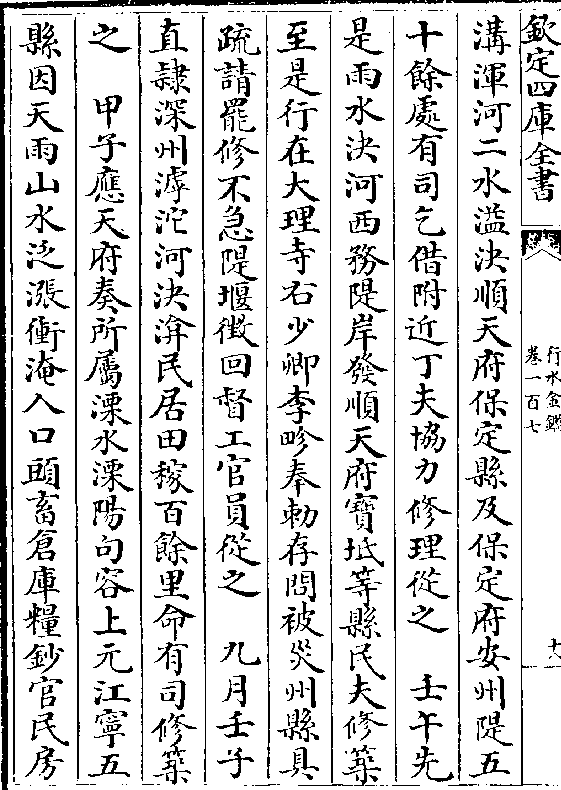 欽定四庫全書
行水金鑑
卷一百七
十八
溝渾河二水溢決順天府保定縣及保定府安州隄五
十餘處有司乞借附近丁夫協力修理從之　壬午先
是雨水決河西務隄岸發順天府寶坻等縣民夫修築
至是行在大理寺右少卿李畛奉勅存問被災州縣具
疏請罷修不急隄堰徴回督工官員從之　九月壬子
直隷深州滹沱河決渰民居田稼百餘里命有司修築
之　甲子應天府奏所屬溧水溧陽句容上元江寧五
縣因天雨山水泛漲衝淹人口頭畜倉庫糧鈔官民房